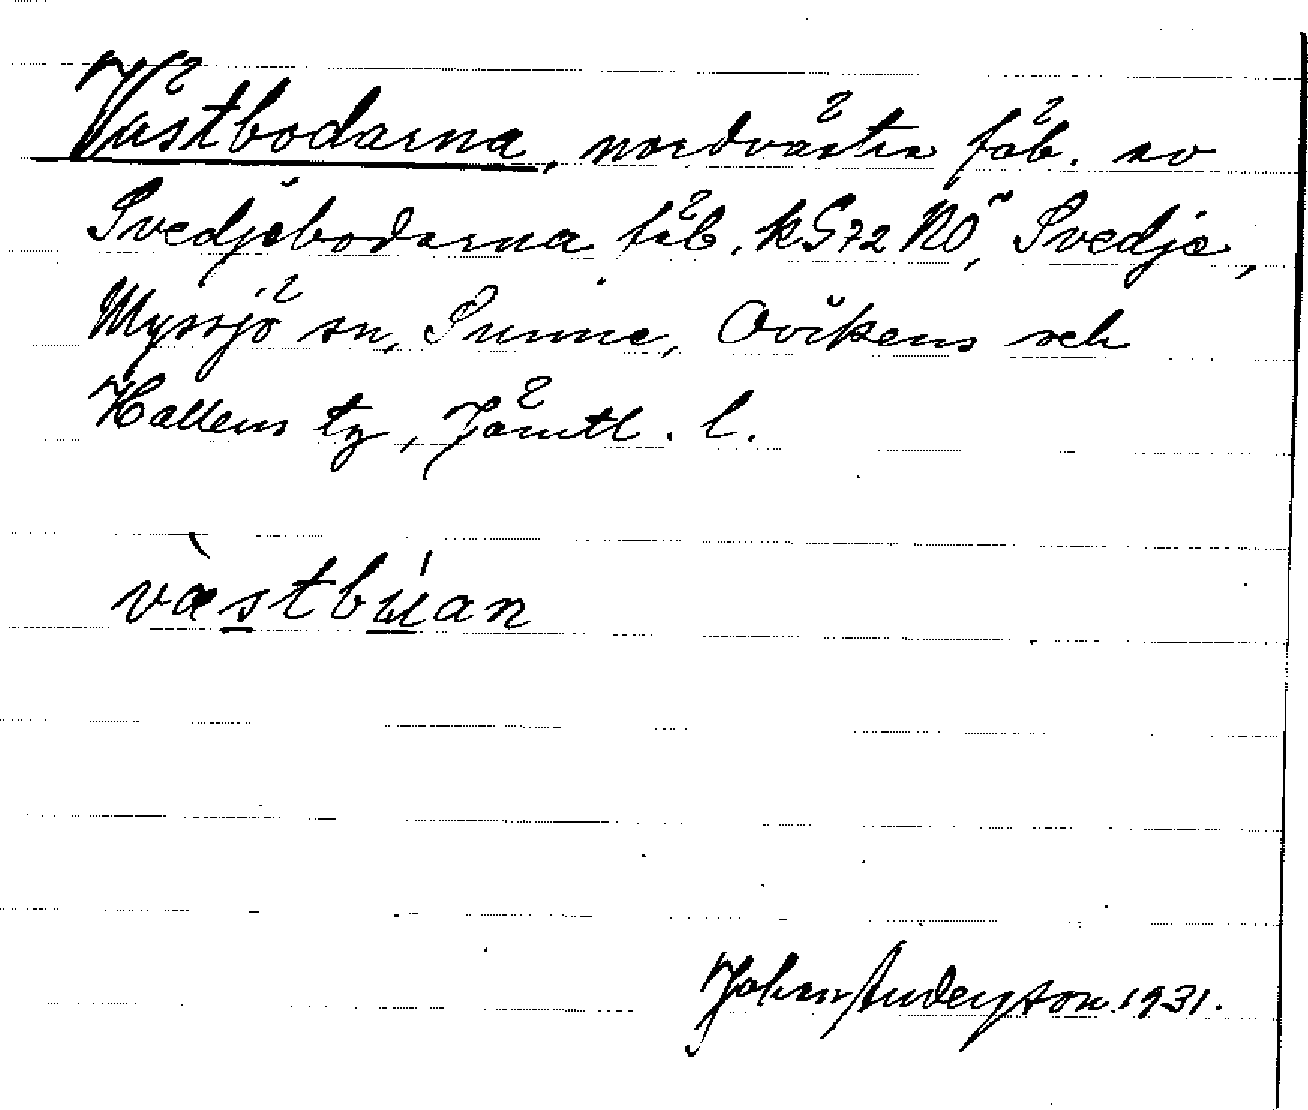 Västbodarna, nordvästra fäb. av
Svedjebodarna fäb. kG72NO, Svedje,
Myssjö sn, Sunne, Ovikens och
Hallens tg, Jämtl. l.
væ̀stbúan
Johan Anderson 1931.